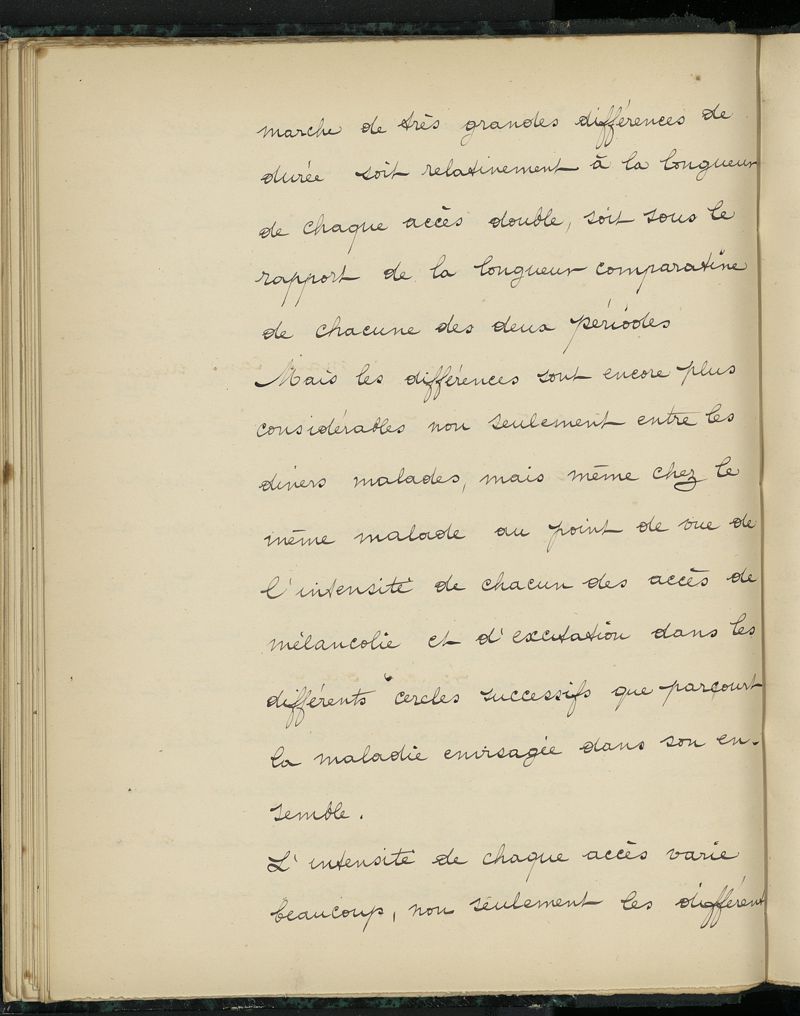 marche de très grandes différences de
durée soit relativement à la longueur
de chaque accès double, soit sous le
rapport de la longueur comparative
de chacune des deux périodes
Mais les différences sont encore plus
considérables non seulement entre les
divers malades, mais même chez le
même malade au point de vue de
l'intensité de chacun des accès de
mélancolie et d'excitation dans les
différents cercles successifs que parcourt
la maladie envisagée dans son en-
semble.
L'intensité de chaque accès varie
beaucoup, non seulement les différent